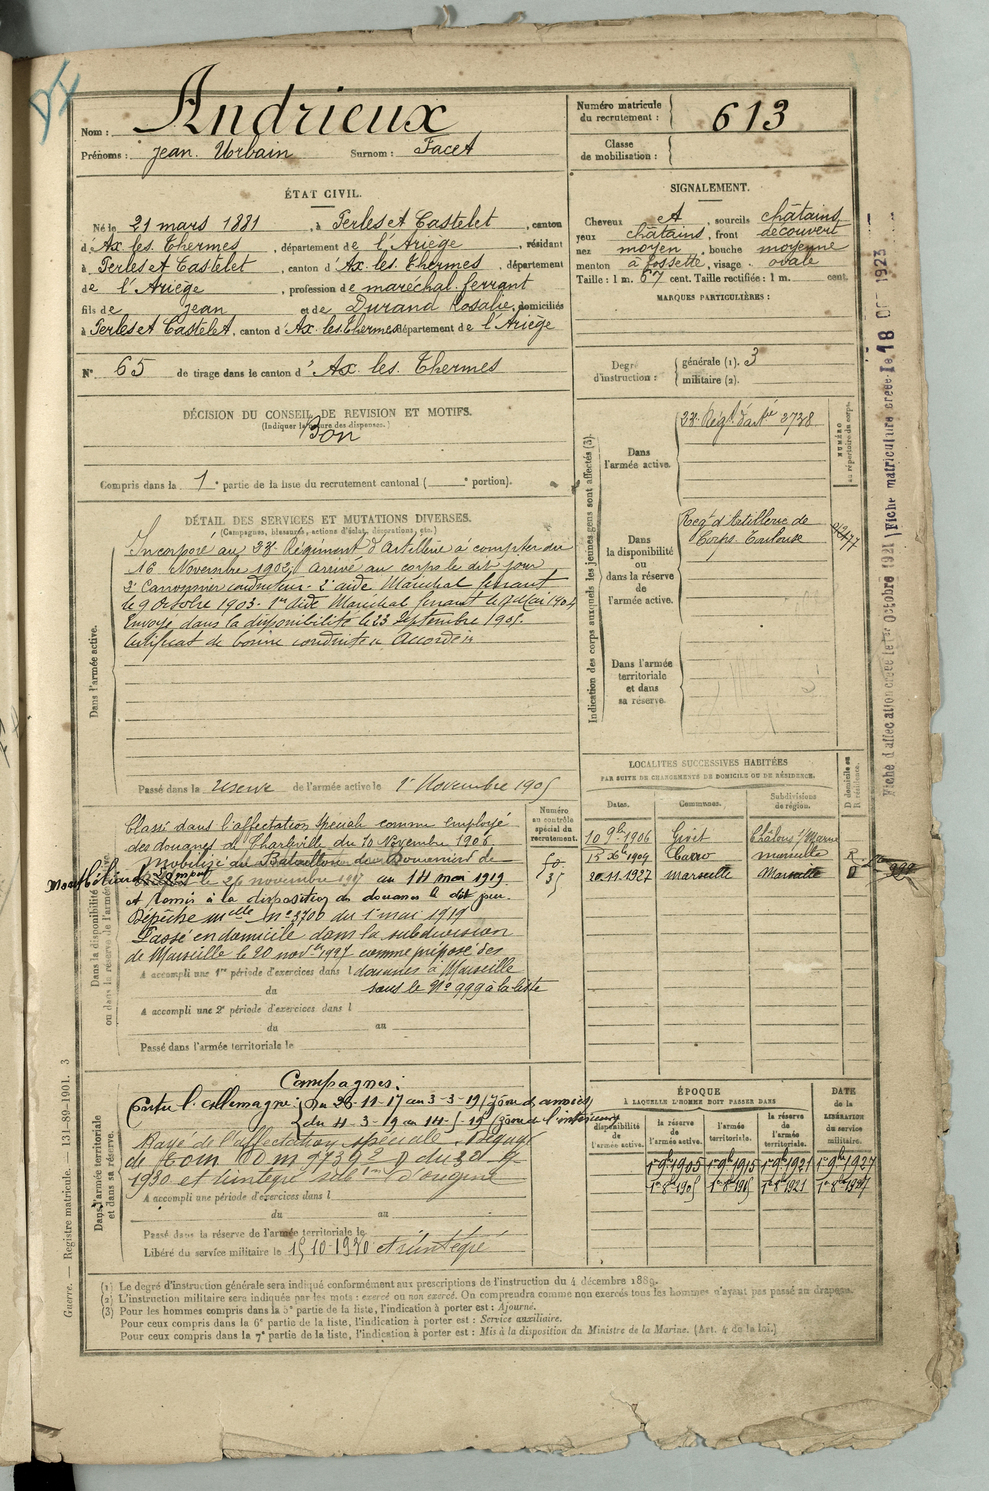 Nom : Andrieux
Prénoms : Jean Urbain Surnom : Facet
Numéro matricule du recrutement : 613
Classe de mobilisation :
ÉTAT CIVIL.
Né le 21 mars 1881, à Perles et Castelet, canton
d'Ax les Thermes, département de l'Ariège, résidant
à Perles et Castelet, canton d'Ax les Thermes, département
de l'Ariège, profession de maréchal ferrant
fils de Jean et de Durand Rosalie, domiciliés
à Perles et Castelet, canton d'Ax les Thermes département de l'Ariège
N° 65 de tirage dans le canton d'Ax les Thermes
SIGNALEMENT.
Cheveux et, sourcils châtains
yeux châtains, front découvert
nez moyen, bouche moyenne
menton à fossette, visage ovale
Taille : 1 m. 67 cent. Taille rectifiée : 1 m. cent.
MARQUES PARTICULIÈRES :
Degré d'instruction : générale (1). 3
militaire (2).
DÉCISION DU CONSEIL DE REVISION ET MOTIFS.
(Indiquer la nature des dispenses.)
Bon
Compris dans la 1e partie de la liste du recrutement cantonal ( e portion).
DÉTAIL DES SERVICES ET MUTATIONS DIVERSES.
(Campagnes, blessures, actions d'éclat, décorations, etc.)
Dans l'armée active.
Incorporé au 23e Régiment d'Artillerie à compter du
16 Novembre 1902, arrivé au corps le dit jour
2e Canonnier conducteur. 2e aide Maréchal ferrant
le 9 Octobre 1903. 1er aide Maréchal ferrant le 9 Mai 1904
Envoyé dans la disponibilité le 23 Septembre 1905.
Certificat de bonne conduite Accordé
Passé dans la réserve de l'armée active le 1er Novembre 1905
Indication des corps auxquels les jeunes gens sont affectés (3).
NUMÉRO au répertoire du corps.
Dans l'armée active.
23e Régt d'artie 2738
Dans la disponibilité ou dans la réserve de l'armée active.
Regt d'Artillerie de
Corps. Toulouse
Dans l'armée territoriale et dans sa réserve.
Fiche d'affectation créée le 1er Octobre 1921 / Fiche matriculaire créée le 18 OCT 1923
LOCALITES SUCCESSIVES HABITÉES
PAR SUITE DE CHANGEMENTS DE DOMICILE OU DE RÉSIDENCE.
Dates. Communes. Subdivisions de région. D domicile ou R résidence.
10 9bre 1906 Givet Châlons s/Marne
Marseille R
20.11.1927 Marseille Marseille D
Numéro au contrôle spécial du recrutement.
Dans la disponibilité ou dans la réserve de l'armée active.
Classé dans l'affectation spéciale comme employé
des douanes de Charleville du 10 Novembre 1906
Mobilisé au Bataillon de Douaniers de
Montbéliard le 26 novembre 1917 au 14 mai 1919
et Remis à la disposition des douanes le dit jour.
Dépêche mlle n° 3700 du 1er mai 1919
Passé en domicile dans la subdivision
de Marseille le 20 novbre 1927 comme préposé des
A accompli une 1re période d'exercices dans l douanes à Marseille
du sous le N° 999 à la liste
A accompli une 2e période d'exercices dans l
du au
Passé dans l'armée territoriale le
Dans l'armée territoriale et dans sa réserve.
Campagnes :
Contre l'Allemagne : du 26-11-17 au 3-3-19 (zône d armées)
du 4-3-19 au 14-5-19 (zône de l'intérieur)
Rayé de l'affectation spéciale.
1930 et réintégré d'origine
A accompli une période d'exercices dans l
du au
Passé dans la réserve de l'armée territoriale le
Libéré du service militaire le 15-10-1930 et réintégré
ÉPOQUE
À LAQUELLE L'HOMME DOIT PASSER DANS
la disponibilité de l'armée active. la réserve de l'armée active. l'armée territoriale. la réserve de l'armée territoriale. DATE de la LIBÉRATION du service militaire.
1er 9bre 1905 1er 9bre 1915 1er 9bre 1921 1er 9bre 1927
Guerre. — Registre matricule. — 131-89-1901. 3
(1) Le degré d'instruction générale sera indiqué conformément aux prescriptions de l'instruction du 4 décembre 1889.
(2) L'instruction militaire sera indiquée par les mots : exercé ou non exercé. On comprendra comme non exercés tous les hommes n'ayant pas passé au drapeau.
(3) Pour les hommes compris dans la 5e partie de la liste, l'indication à porter est : Ajourné.
Pour ceux compris dans la 6e partie de la liste, l'indication à porter est : Service auxiliaire.
Pour ceux compris dans la 7e partie de la liste, l'indication à porter est : Mis à la disposition du Ministre de la Marine. (Art. 4 de la loi.)